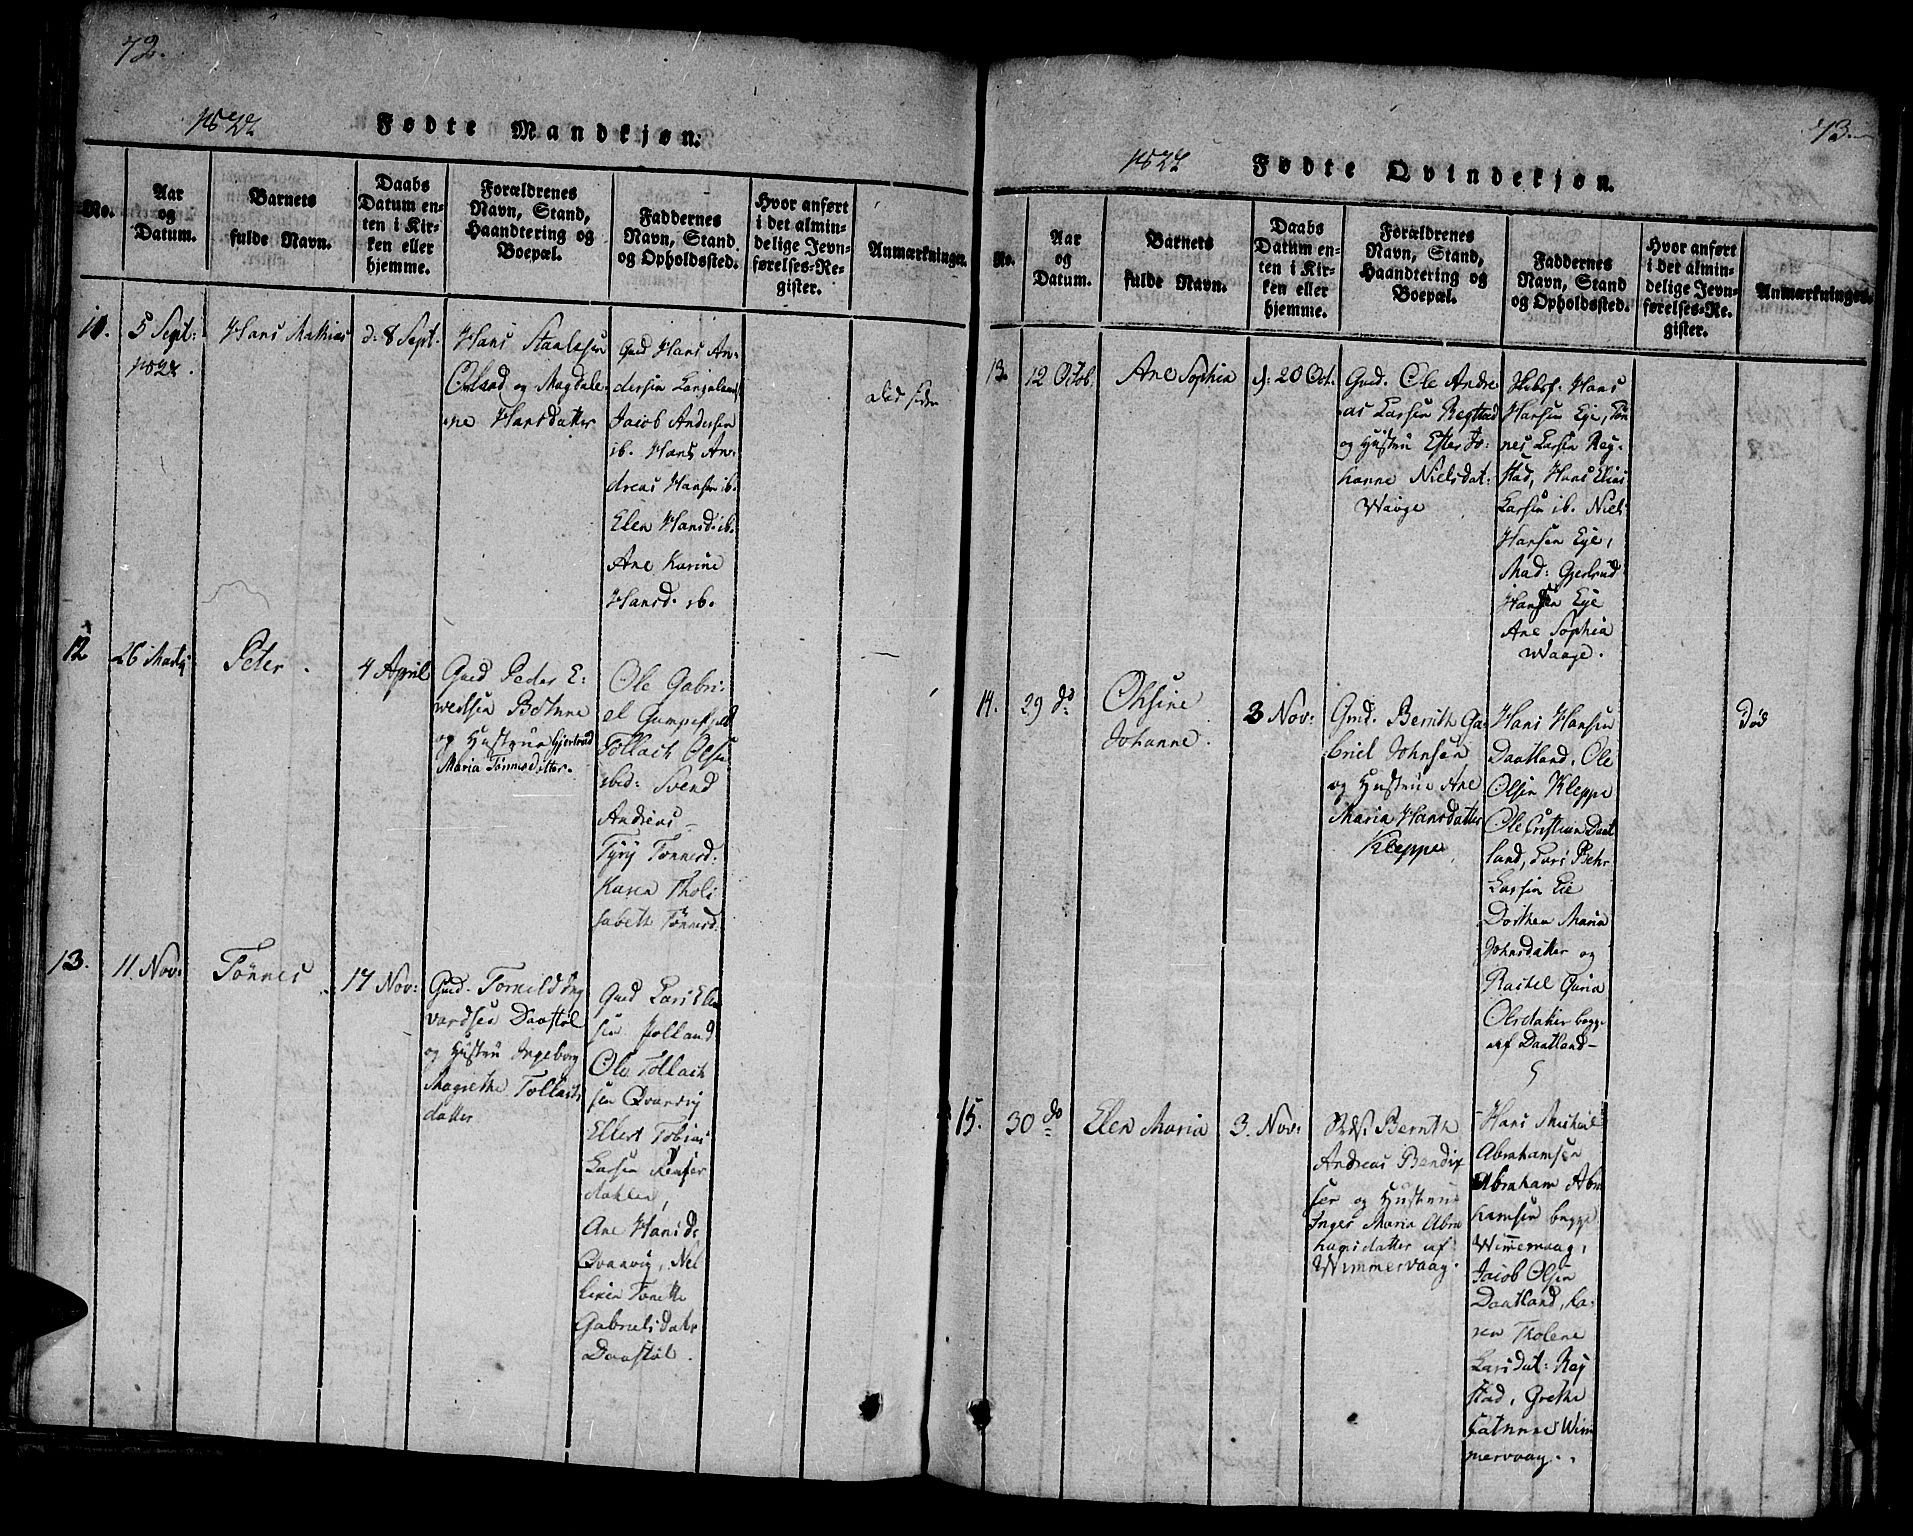 72.
1822
Fødte Mandkjøn.
No.
Aar
og
Datum.
Barnets
fulde Navn.
Daabs
Datum en-
ten i Kir-
ken eller
hjemme.
Forældrenes
Navn, Stand,
Haandtering og
Boepæl.
Faddernes
Navn, Stand
og Opholdssted.
Hvor anført
i det almin-
delige Jevn-
førelses-Re-
gister.
Anmærkninger.
5 Sept:
1822.
Hans Mathias
d: 8 Sept.
Hans Staalesen
og Magdale-
ne Hansdatter
Gmd Hans An-
dersen
Jacob Andersen
ib. Hans An-
dreas Hansen ib.
Elen Hansd. ib.
Ane Karine
Hansd. ib.
12
26 Martij
Peter
4 April
Gmd Peder E-
og Hustrue Gjertrud
Maria Tønnesdatter.
Ole Gabri-
el
Tollach Olsen
ibid: Svend
Andreas
Tyrij Tønnesd.
Karen Tholi-
sabeth Tønnesd.
13.
11. Nov:
Tønnes
17 Nov:
Gmd. Tormild Ing
vardsen Daastøl
og Hustru Ingeborg
Magrethe Tollachs
datter
Gmd Lars
sen
Ole Tollach
sen Qvanvig
Ellert Tobias
Larsen
Ane Hansd:
Qvanvig, Nel
Tonette
Gabrielsdatr
Daastøl.
73.
1822
Fødte Qvindekjøn.
No.
Aar
og
Datum.
Barnets
fulde Navn.
Daabs
Datum en-
ten i Kir-
ken eller
hjemme.
Forældrenes
Navn, Stand,
Haandtering og
Boepæl.
Faddernes
Navn, Stand
og Opholdssted.
Hvor anført
i det almin-
delige Jevn-
førelses-Re-
gister.
Anmærkninger.
13.
12 Octob.
Ane Sophia
d: 20 Oct.
Gmd. Ole Andre
as Larsen Regstad
og Hustru Ester Jo-
hanne Nielsdat:
Waage
Hans
Hansen Eje, Tøn
nes Larsen Reg-
stad, Hans Elias
Larsen ib. Niels
Hansen Eje,
Mad: Gjertrud
Hansen Eje
Ane Sophia
Waage.
14.
29 do
Olsine
Johanne.
3 Nov:
Gmd. Bernth Ga-
briel Johnsen
og Hustrue Ane
Maria Hansdatter
Kleppe
Hans Hansen
Daatland, Ole
Olsen Kleppe
Ole Cristian Daat
land, Lars Pehr
Larsen Eie
Dorthea Maria
Johnsdatter og
Rachel Guria
Olsdatter begge
af Daatland
Død
15.
30 do
Elen Maria
3. Nov:
Bernth
Andreas Bendix
sen og Hustrue
Inger Maria Abra
hamsdatter af
Wimmervaag.
Hans Michael
Abrahamsen
Abraham Abra
hamsen begge
Wimmervaag,
Jacob Olsen
Daatland, Ka-
ren Tholene
Larsdat: Reg
stad, Grethe
Catrine Wim
mervaag.